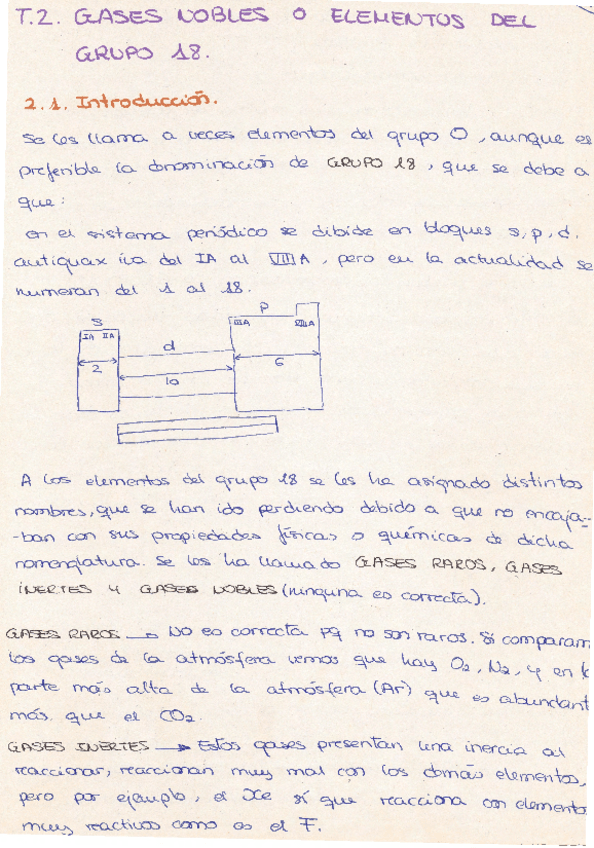 T.2. GASES NOBLES O ELEMENTOS DEL
GRUPO 18.
2.1. Introducción.
Se les llama a veces elementos del grupo O, aunque es
preferible la denominación de GRUPO 18, que se debe a
que:
en el sistema periódico se dibide en bloques s, p, d.
antiguax iva del IA al VIIIA, pero en la actualidad se
numeran del 1 al 18.
S
P
IA IIA
IIIA
VIIIA
d
2
6
10
A los elementos del grupo 18 se les ha asignado distintos
nombres, que se han ido perdiendo debido a que no encaja-
-ban con sus propiedades físicas o químicas de dicha
nomenclatura. Se les ha llamado GASES RAROS, GASES
INERTES Y GASES NOBLES (ninguna es correcta).
GASES RAROS → No es correcta pq no son raros. Si comparam
los gases de la atmósfera vemos que hay O2, N2, y en la
parte más alta de la atmósfera (Ar) que es abundant
más que el CO2.
GASES INERTES → Estos gases presentan una inercia al
reaccionar, reaccionan muy mal con los demás elementos,
pero por ejemplo, el Xe sí que reacciona con elemento
muy reactivos como es el F.